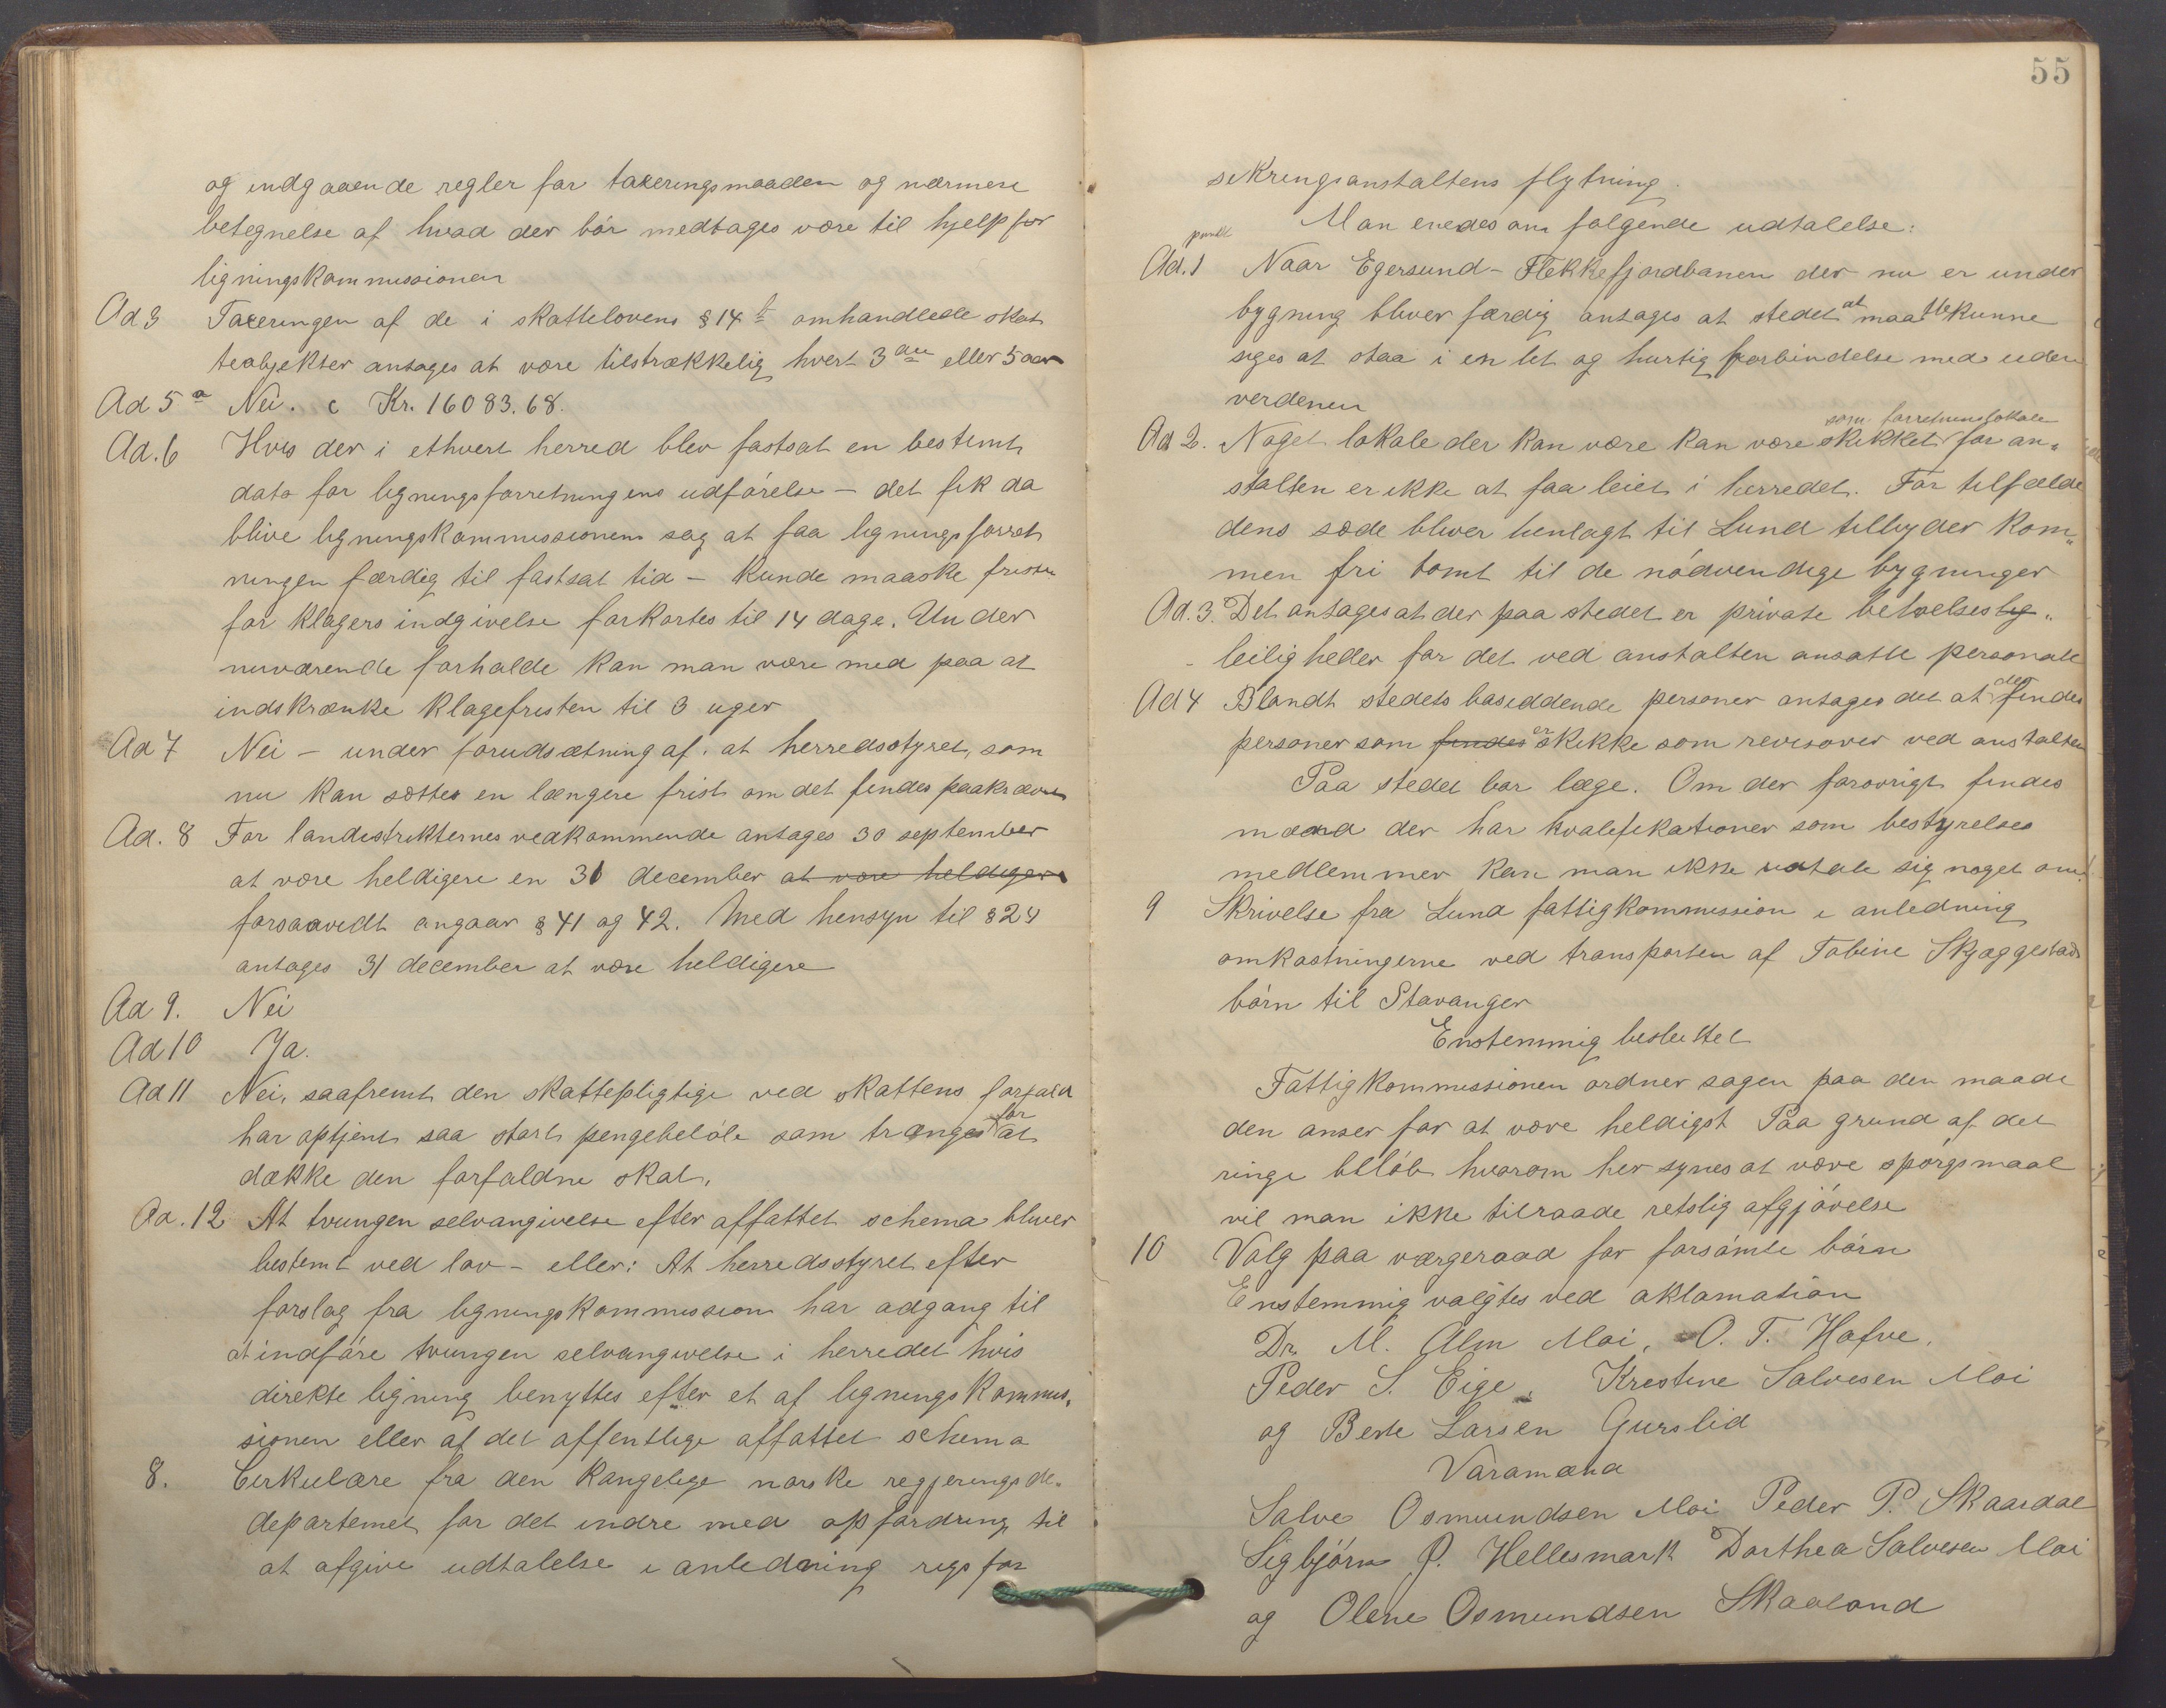 og indgaaende regler for taxeringsmaaden og nærmere
betegnelse af hvad der bör medtages være til hjelp for
ligningskommissionen
Ad 3 Taxeringen af de i skattelovens § 14 b omhandlede skat
teobjekter antages at være tilstrækkelig hvert 3die eller 5 aar
Ad 5 a Nei. c Kr. 16083.68.
Ad. 6 Hvis der i ethvert herred blev fastsat en bestemt
dato for ligningsforretningens udförelse – det fik da
blive ligningskommissionens sag at faa ligningsforret
ningen færdig til fastsat tid – kunde maaske fristen
for klagers indgivelse forkortes til 14 dage. Under
nuværende forholde kan man være med paa at
indskrænke klagefristen til 3 uger
Ad 7 Nei – under forudsætning af, at herredsstyret, som
nu kan sættes en længere frist om det findes paakrævet
Ad. 8 For landistrikternes vedkommende antages 30 september
at være heldigere en 31 december at være heldigere
forsaavidt angaar § 41 og 42. Med hensyn til § 24
antages 31 december at være heldigere
Ad 9. Nei
Ad 10 Ja.
Ad 11 Nei, saafremt den skattepligtige ved skattens forfald
har optjent saa stort pengebelöb som trænges for at
dække den forfaldne skat.
Ad. 12 At tvungen selvangivelse efter affattet schema bliver
bestemt ved lov – eller: At herredsstyret efter
forslag fra ligningskommission har adgang til
at indföre tvungen selvangivelse i herredet hvis
direkte ligning benyttes efter et af ligningskommis„
sionen eller af det offentlige affattet schema
8. Cirkulære fra den kongelige norske regjerings de„
departemet for det indre med opfordring til
at afgive udtalelse i anledning rigsfor
55
sikringsanstaltens flytning.
Man enedes om følgende udtalelse:
punkt
Ad. 1 Naar Egersund-Flekkefjordbanen der nu er under
bygning bliver færdig antages at stedet at maatte kunne
siges at staa i en let og hurtig forbindelse med uden
verdenen
som forretningslokale
Ad 2. Noget lokale der kan være kan være skikket for an„
stalten er ikke at faa leiet i herredet. For tilfælde
dens sæde bliver henlagt til Lund tilbyder kom„
men fri tomt til de nödvendige bygninger
Ad. 3. Det antages at der paa stedet er private beboelseslig„
leiligheder for det ved anstalten ansatte personale
Ad 4 Blandt stedets bosiddende personer antages det at der findes
personer som findes er skikke som revisorer ved anstalten
Paa stedet bor læge. Om der forøvrigt findes
mænd der har kvalifikationer som bestyrelses
medlemmer kan man ikke udtale sig noget om.
9 Skrivelse fra Lund fattigkommission i anledning
omkostningerne ved transporten af Tobine Skjæggestads
börn til Stavanger
Enstemmig besluttet
Fattigkommissionen ordner sagen paa den maade
den anser for at være heldigst Paa grund af det
ringe belöb hvorom her synes at være spörgsmaal
vil man ikke tilraade retslig afgjörelse
10 Valg paa værgeraad for forsömte börn
Enstemmig valgtes ved aklamation
Dr. M. Alm Moi, O. T. Hafve,
Peder S. Eige, Kristine Salvesen Moi
og Berte Larsen Gurslid
Varamænd
Salve Osmundsen Moi Peder P. Skaardal
Sigbjörn P. Hellesmark Dorthea Salvesen Moi
og Olene Osmundsen Skaaland